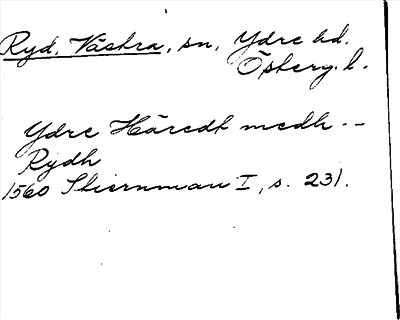 Ryd, Västra, sn, Ydre hd.
Östergl.
Ydre Häredt medh --
Rydh
1560 Stiernman I, s. 231.